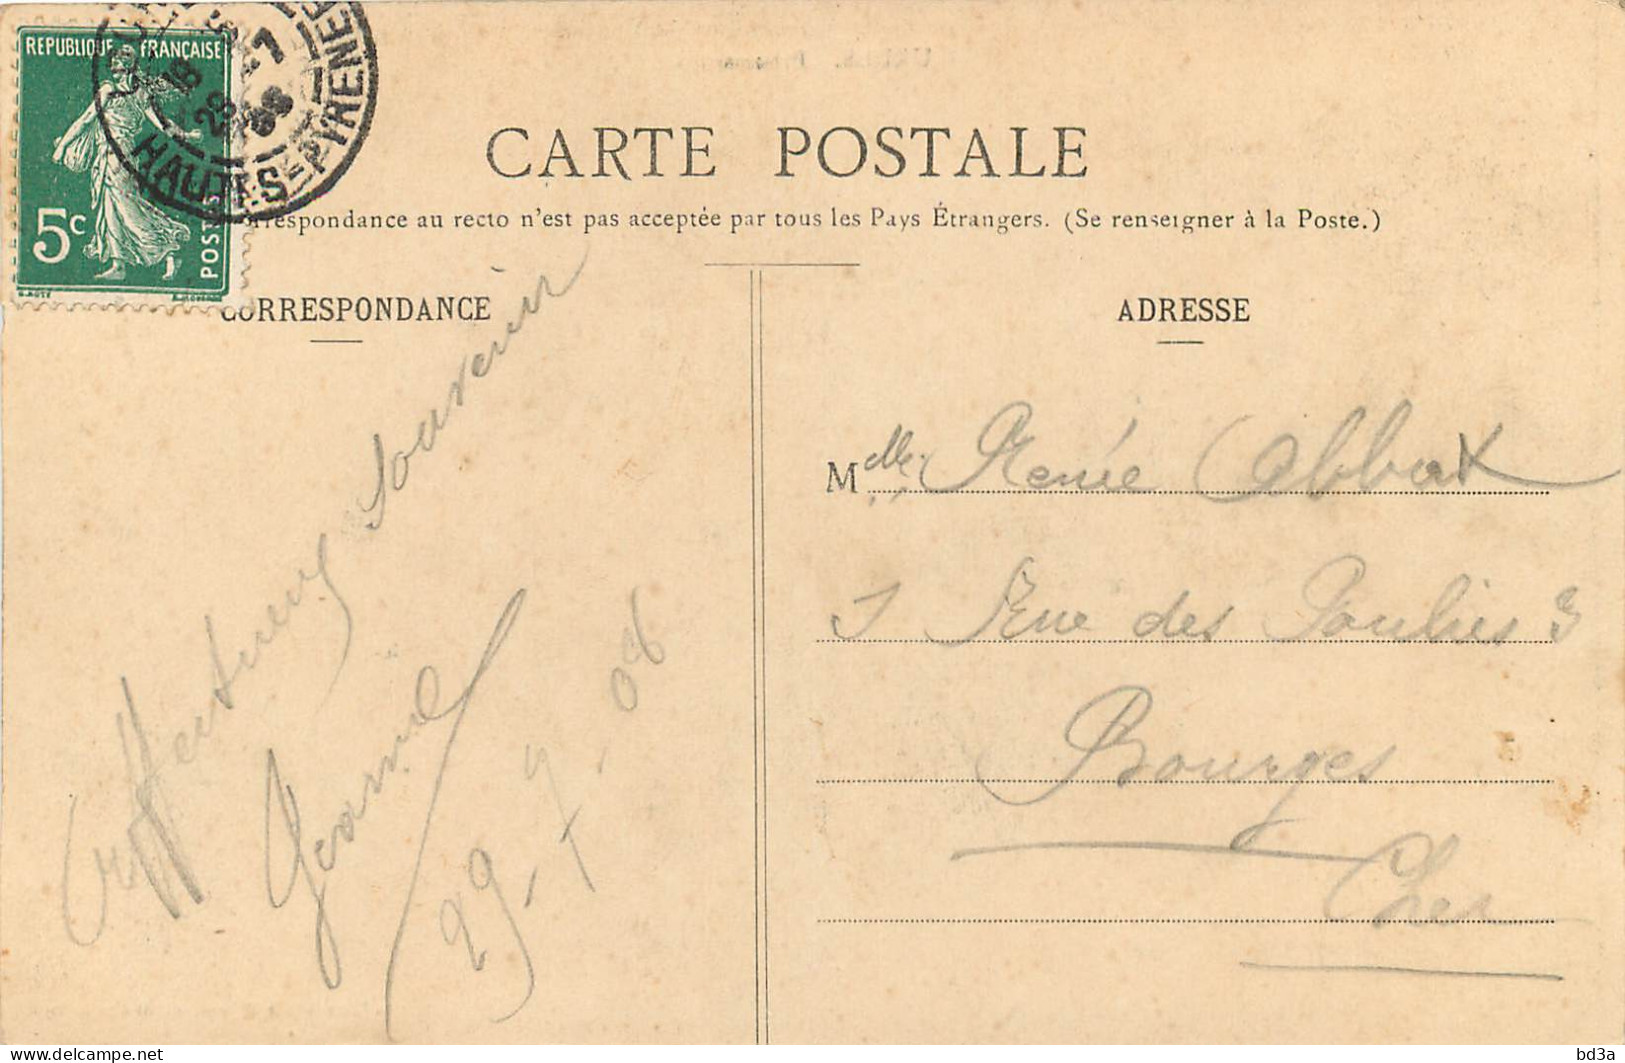 REPUBLIQUE FRANÇAISE
5c
POSTES
HAUTES-PYRENEES
CARTE POSTALE
respondance au recto n'est pas acceptée par tous les Pays Étrangers. (Se renseigner à la Poste.)
CORRESPONDANCE
Affectueux souvenir
29-7-08
ADRESSE
Melle Renée Abbat
Rue des Poulies 3
Bourges
Cher
delcampe.net
bd3a